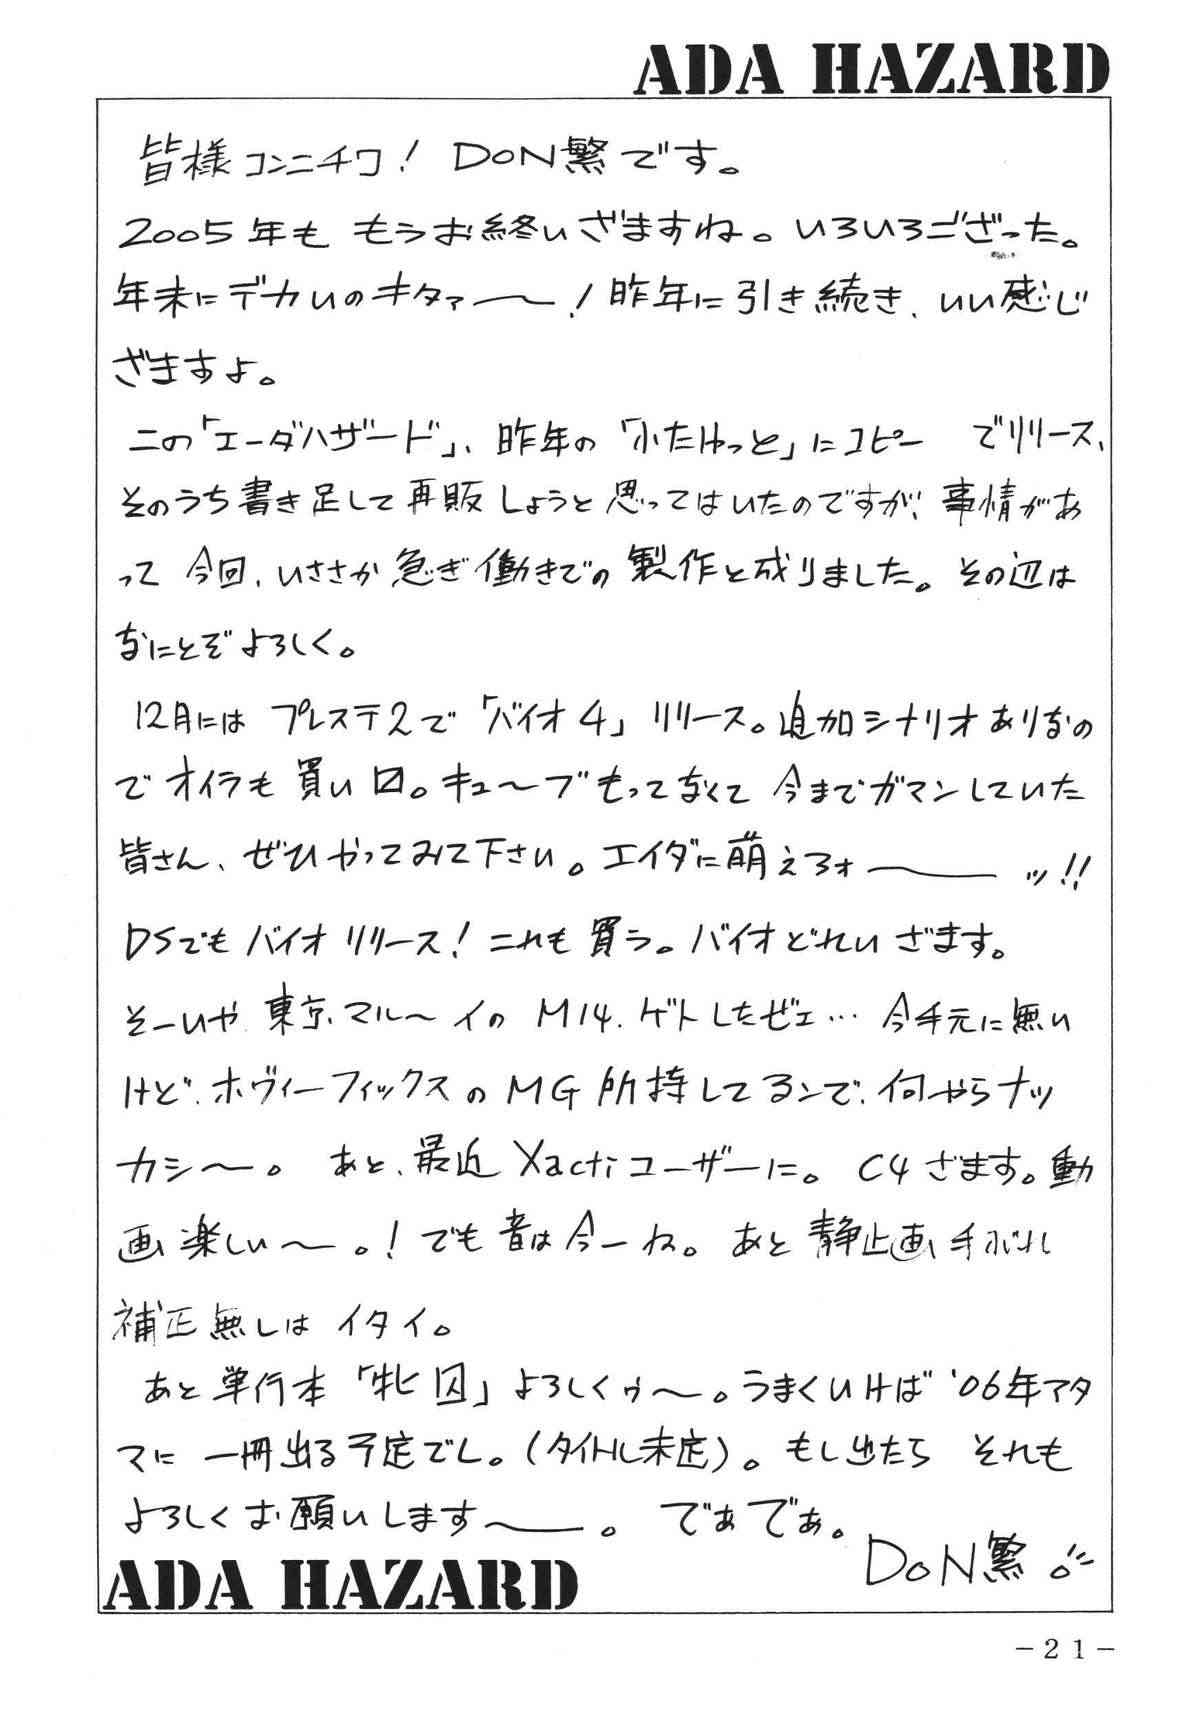 ADA HAZARD
皆様コンニチワ! DON繁です。
2005年も もうお終いざますね。いろいろござった。
年末にデカいのキタァ〜! 昨年に引き続き、いい感じ
ざますよ。
この「エーダハザード」、昨年の「ふたけっと」にコピー でリリース、
そのうち書き足して再販しようと思ってはいたのですが、事情があ
って 今回、いささか急ぎ働きでの製作と成りました。その辺は
なにとぞよろしく。
12月には プレステ2で「バイオ4」リリース。追加シナリオありなの
でオイラも買い 。キュ〜ブもってなくて 今までガマンしていた
皆さん、ぜひやってみて下さい。エイダに萌えろォ〜ッ!!
DSでもバイオリリース! これも買う。バイオどれいざます。
そーいや 東京マル〜イの M14、ゲトしたぜェ… 今手元に無い
けど、ホヴィーフィックスの MG 所持してるンで、何やらナッ
カシ〜。 あと、最近 Xactiユーザーに。C4ざます。動
画楽しい〜。! でも音は今一ね。あと静止画手ぶれ
補正無しはイタイ。
あと単行本「牝囚」よろしくゥ〜。うまくいけば '06年アタ
マに 一冊出る予定でし。(タイトル未定)。もし出たら それも
よろしくお願いします〜。 でぁでぁ。
DON繁
ADA HAZARD
-21-